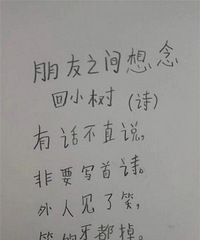 朋友之间想念
回小树（诗）
有话不直说，
非要写首诗。
外人见了笑，
笑的牙都掉。